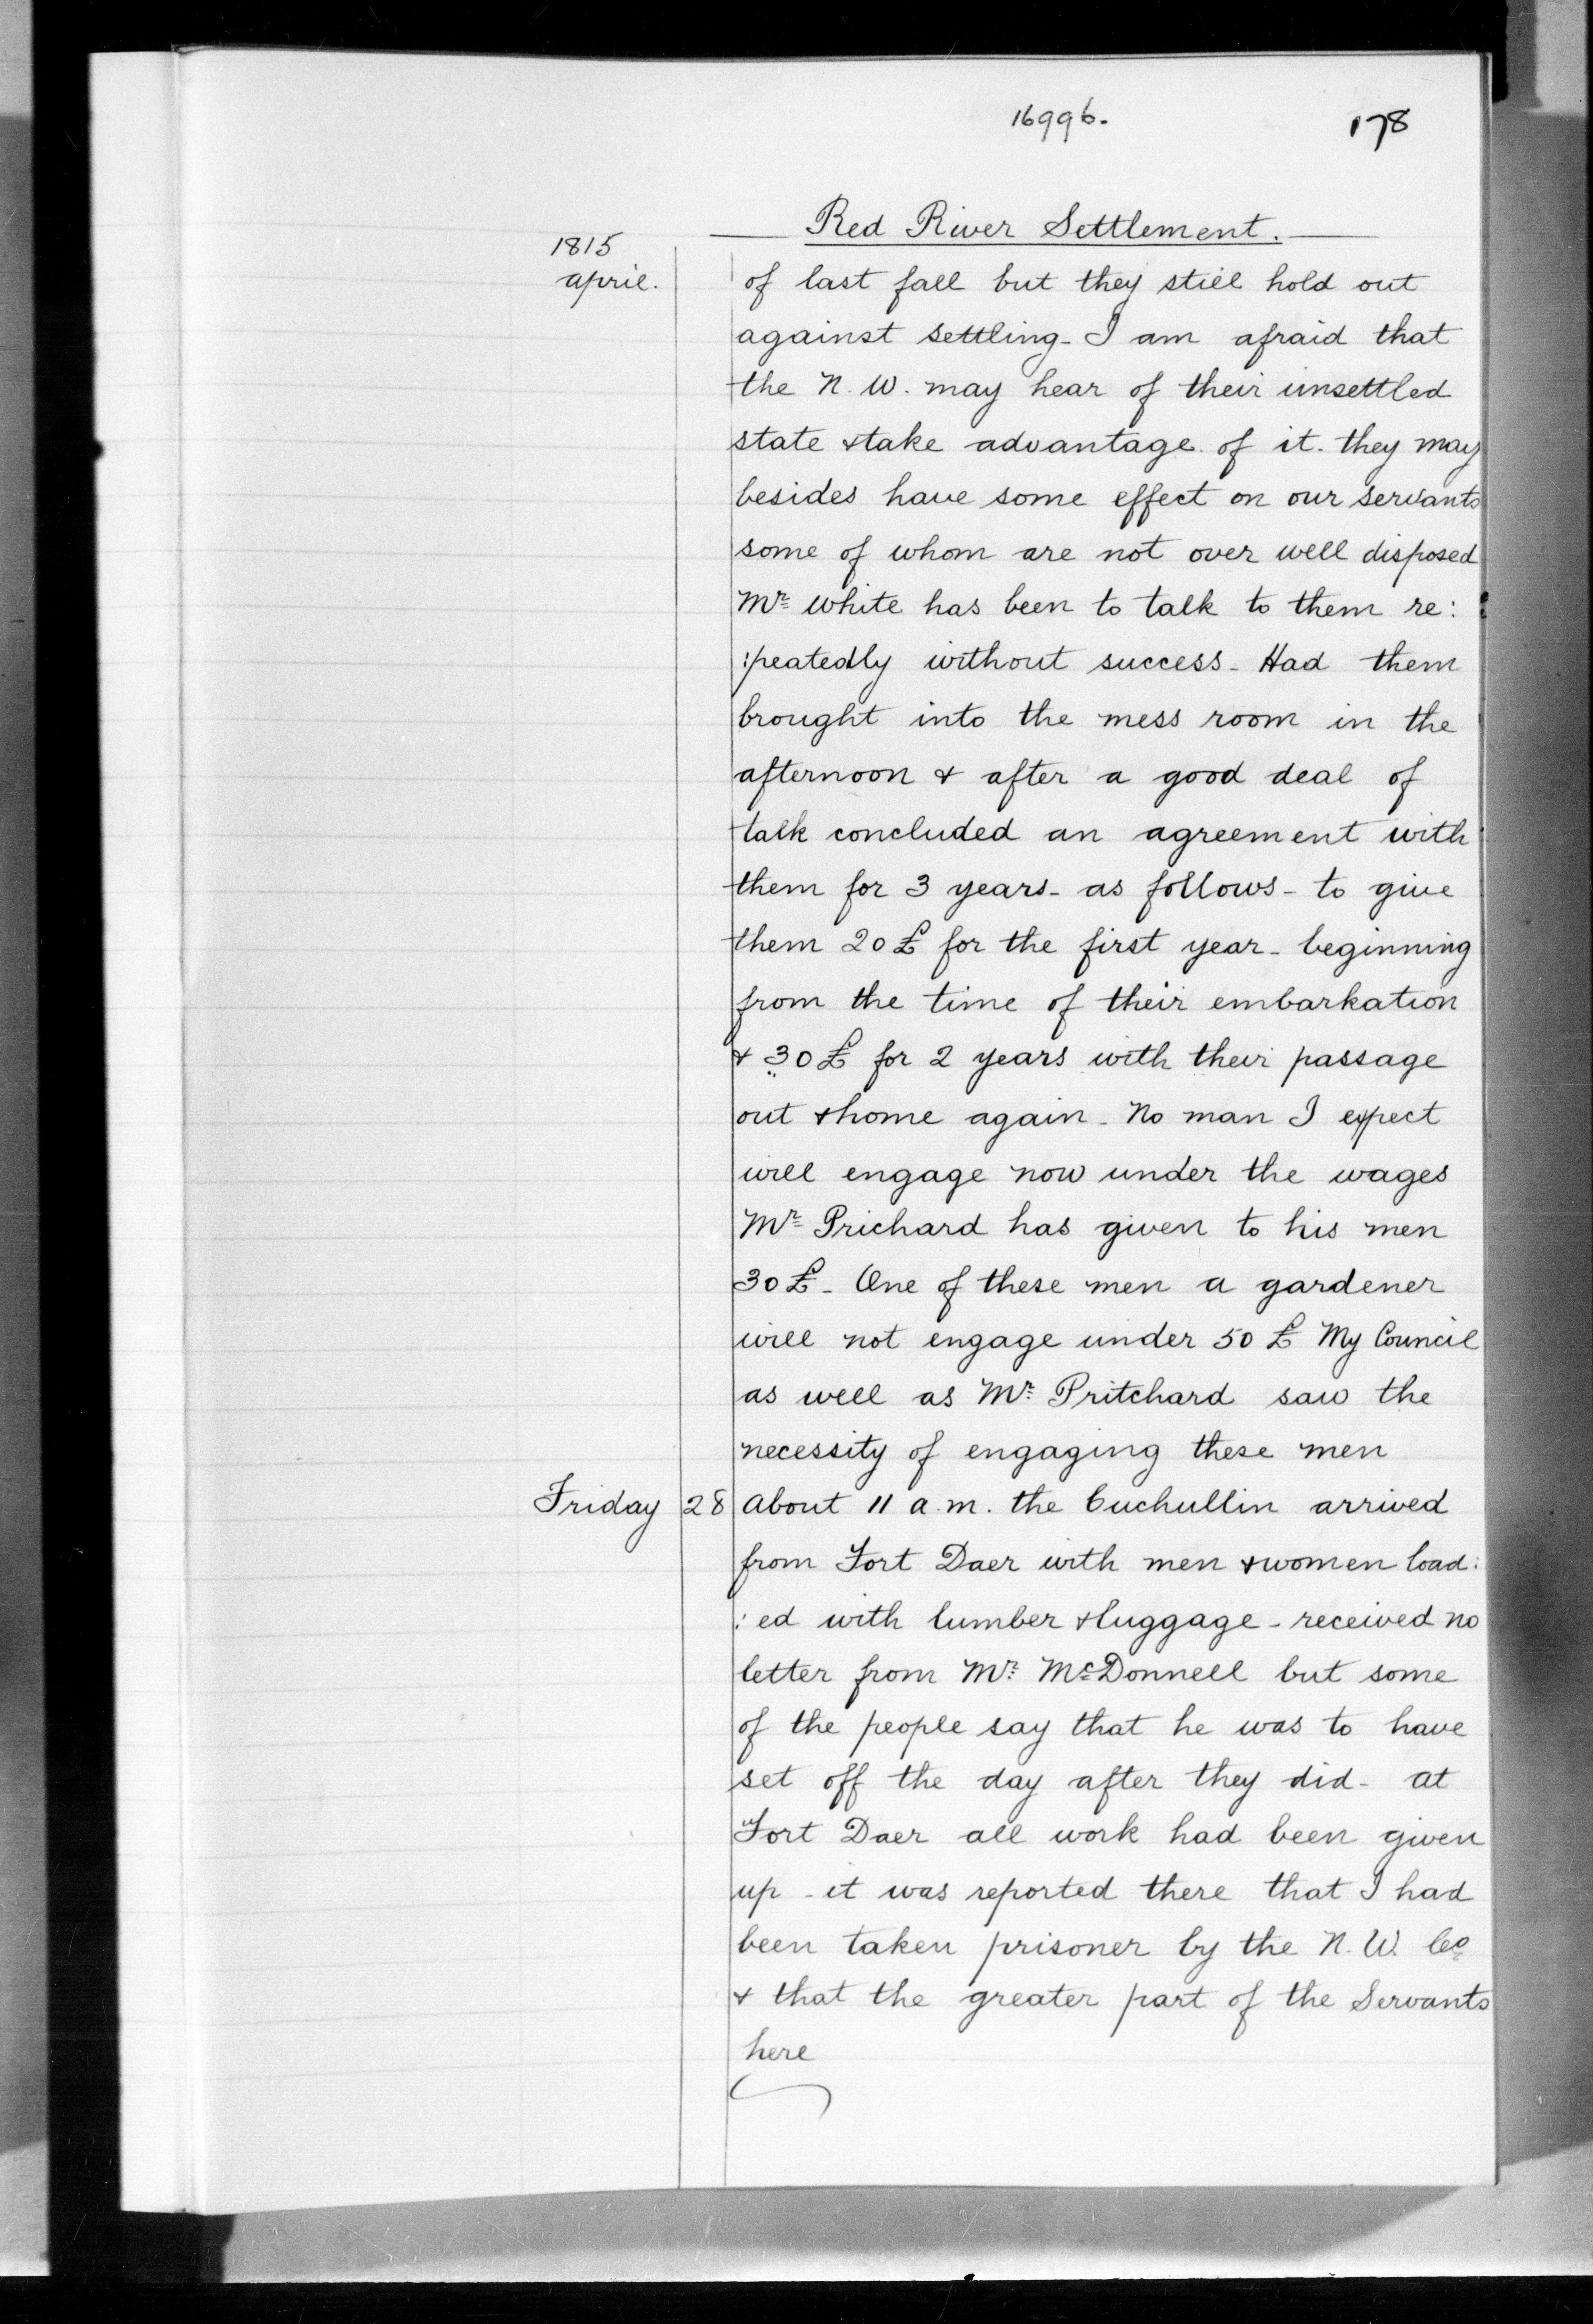 16996. 178
Red River Settlement.
1815
april. of last fall but they still hold out
against settling - I am afraid that
the N. W. may hear of their unsettled
state & take advantage of it. they may
besides have some effect on our servants
some of whom are not over well disposed
Mr White has been to talk to them re:
:peatedly without success - Had them
brought into the mess room in the
afternoon & after a good deal of
talk concluded an agreement with
them for 3 years - as follows - to give
them 20 £ for the first year - beginning
from the time of their embarkation
& 30 £ for 2 years with their passage
out & home again - No man I expect
will engage now under the wages
Mr Prichard has given to his men
30 £ - One of these men a gardener
will not engage under 50 £ My Council
as well as Mr Pritchard saw the
necessity of engaging these men
Friday 28 About 11 a.m. the Cuchullin arrived
from Fort Daer with men & women load:
:ed with lumber & luggage - received no
letter from Mr McDonnell but some
of the people say that he was to have
set off the day after they did - at
Fort Daer all work had been given
up - it was reported there that I had
been taken prisoner by the N. W. Co
& that the greater part of the Servants
here